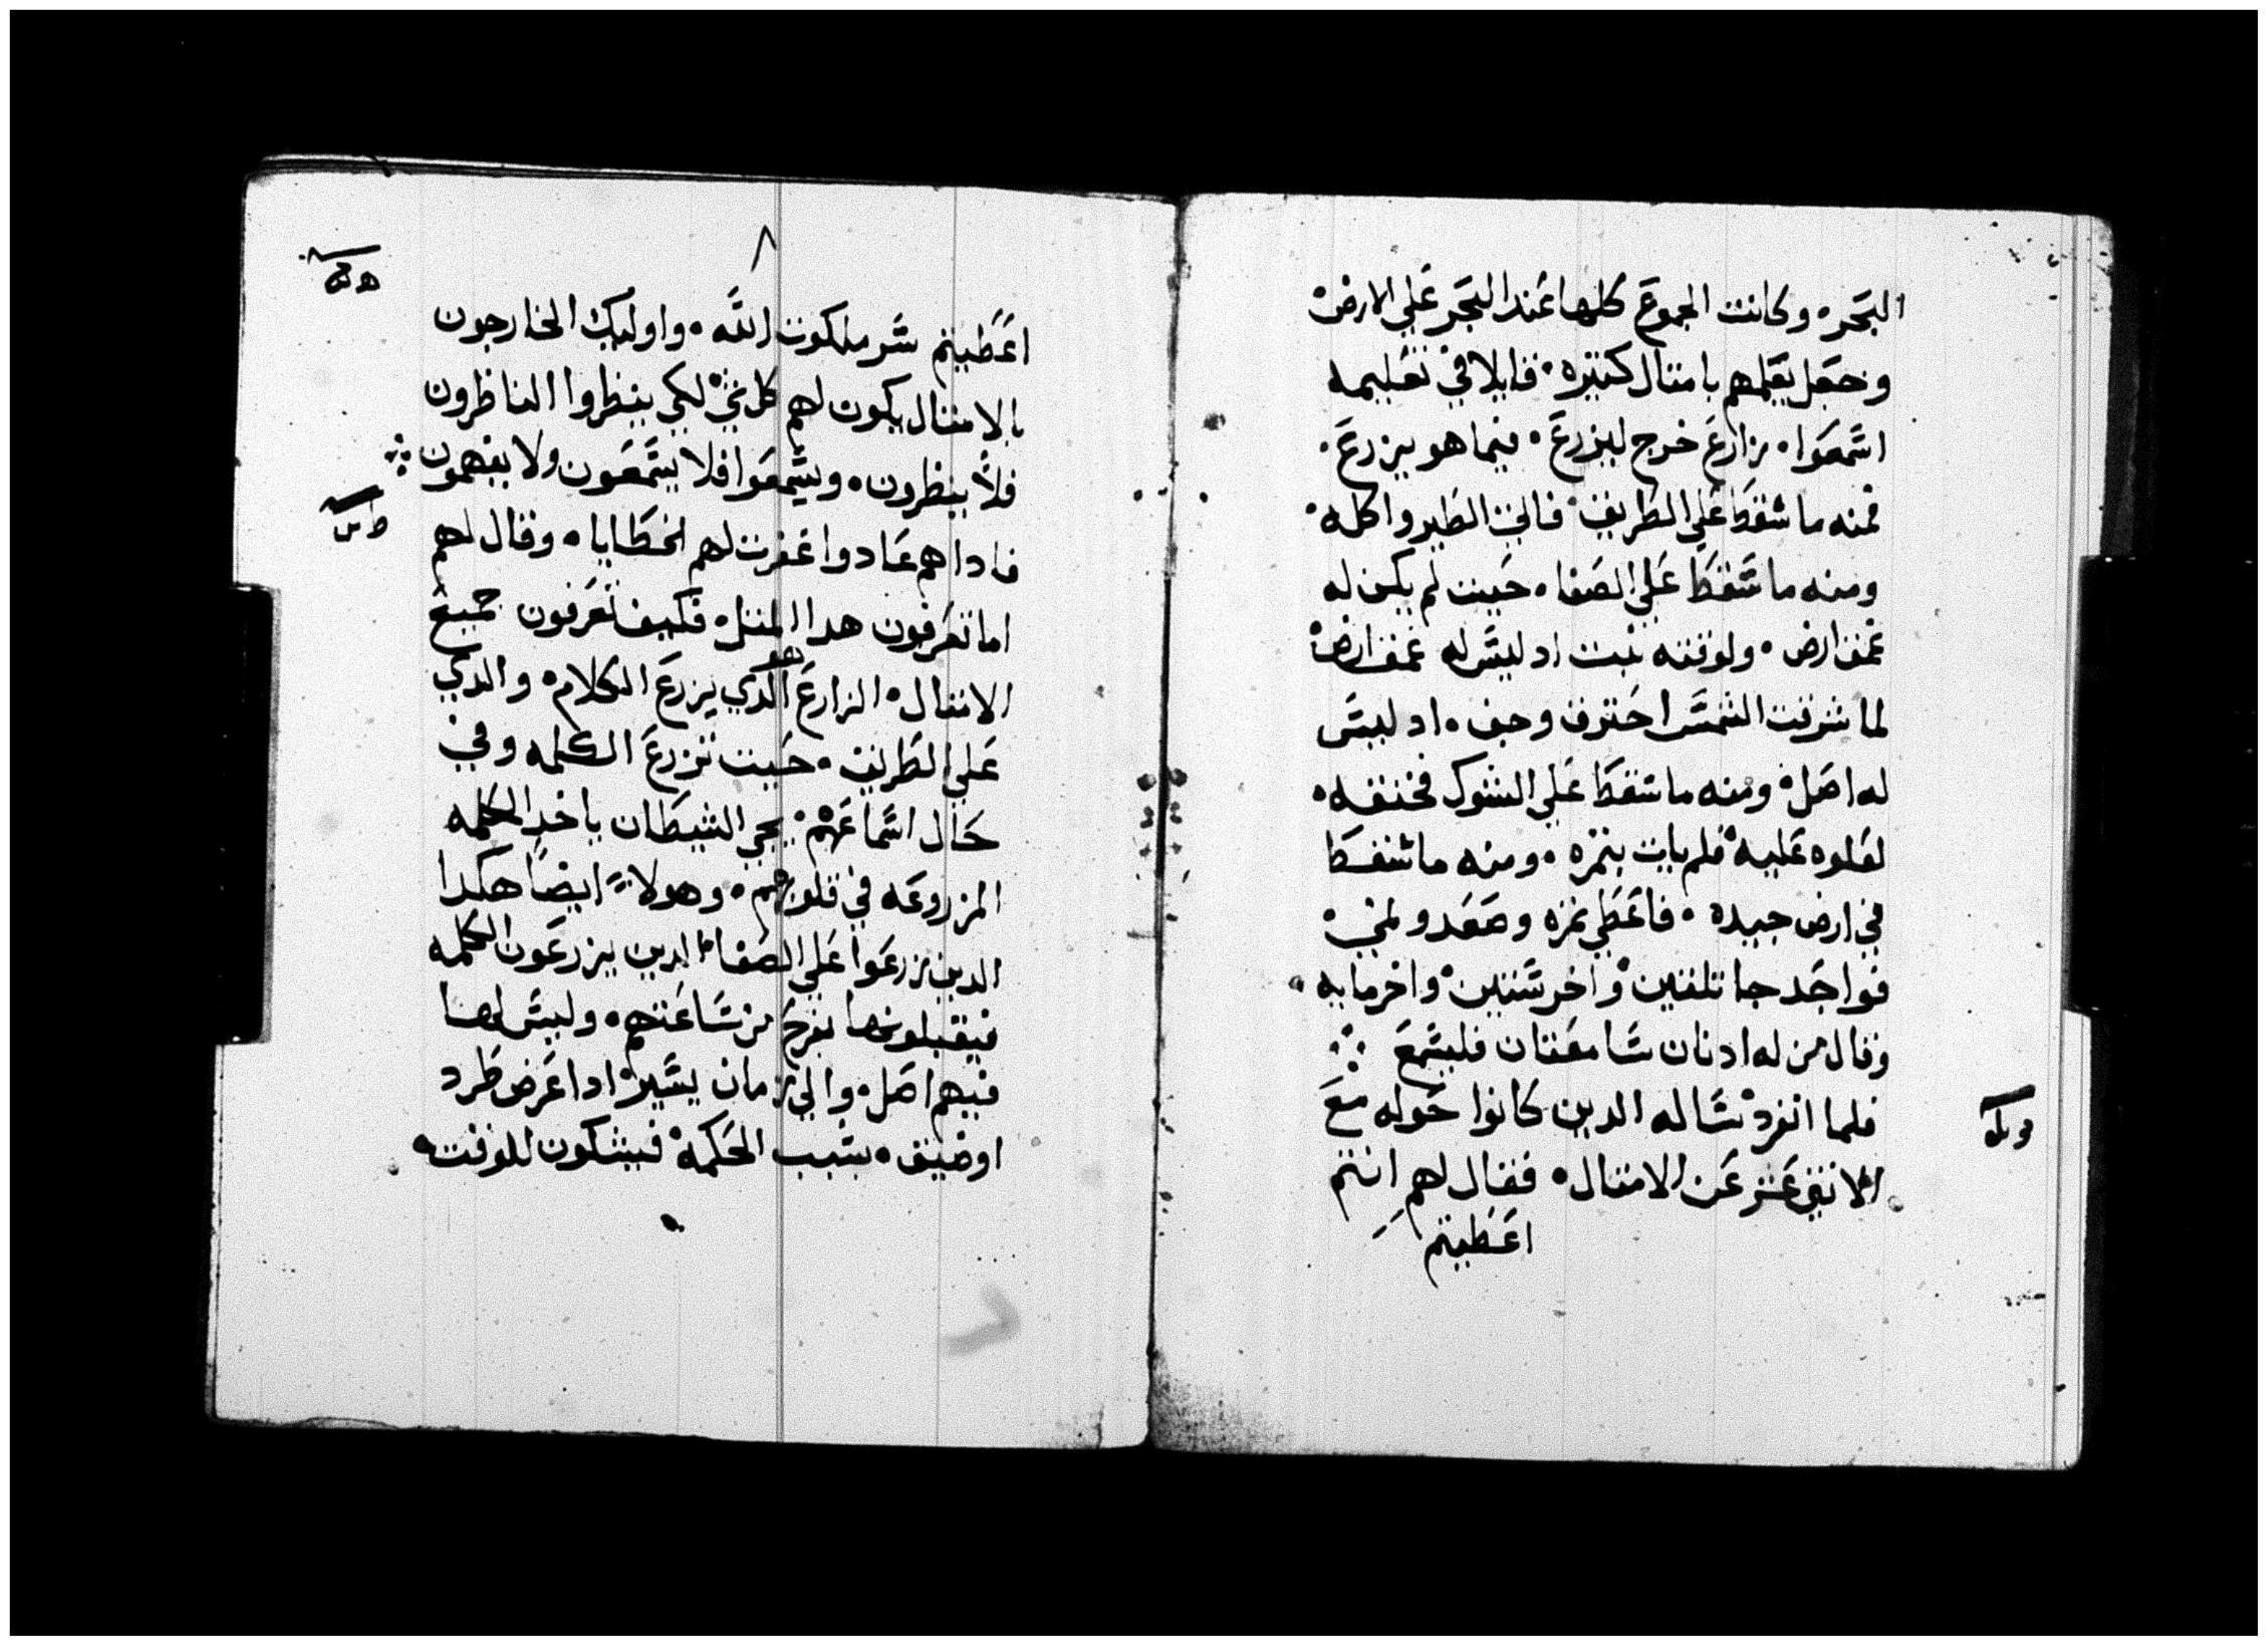 البحر۰ وكانت الجموع كلها عند البحر علي الارض۰
وجعل يعلمهم بامثال كثيره۰ قايلا في تعليمه
اسمعوا۰ زارع خرج ليزرع۰ فيما هو يزرع۰
فمنه ما سقط علي الطريق۰ فاتي الطير واكله۰
ومنه ما سقط علي الصفا۰ حيث لم يكن له
عمق ارض۰ ولوقته نبت اد ليس له عمق ارض۰
لما شرقت الشمس احترق وجف۰ اد ليس
له اصل۰ ومنه ما سقط علي الشوك فخنقه۰
لعلوه عليه۰ فلم يات بثمره۰ ومنه ما سقط
في ارض جيده۰ فاعطي ثمره وصعد ونمي۰
فواحد جا بثلثين۰ واخر ستين۰ واخر مايه
وقال من له ادنان سامعتان فليسمع ⁘
فلما انفرد۰ ساله الدين كانوا حوله مع
الاثني عشر عن الامثال۰ فقال لهم انتم
اعطيتم
٨
اعطيتم سر ملكوت الله۰ واوليك الخارجون
بالامثال يكون لهم كل شي۰ لكي ينظروا الناظرون
فلا ينظرون۰ ويسمعوا فلا يسمعون ولا يفهمون ⁘
فاداهم عادوا غفرت لهم الخطايا۰ وقال لهم
اما تعرفون هدا المثل۰ فكيف تعرفون جميع
الامثال۰ الزارع هو الدي يزرع الكلام۰ والدي
علي الطريق۰ حيث تزرع الكلمه وفي
حال اسماعهم۰ يجي الشيطان ياخد الكلمه
المزروعه في قلوبهم۰ وهولاء ايضا هكدا
الدين زرعوا علي الصفا۰ الدين يزرعون الكلمه
فيقبلونها بفرح من ساعتهم۰ وليس لها
فيهم اصل۰ والي زمان يسير۰ ادا عرض طرد
اوضيق۰ بسبب الحكمة۰ فيشكون للوقت۰